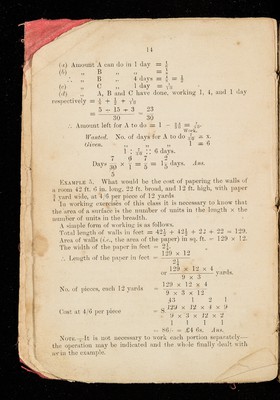 14
(a) Amount A can do in 1 day = 1/6
(b) „ B „ „ = 1/8
∴ „ B „ 4 days = 4/8 = 1/2
(c) „ C „ 1 day = 1/10
(d) „ A, B and C have done, working 1, 4, and 1 day
respectively = 1/6 + 1/2 + 1/10
= 5 + 15 + 3 / 30 = 23/30
∴ Amount left for A to do = 1 − 23/30 = 7/30.
Work.
Wanted. No. of days for A to do 7/30 = x.
Given. „ „ „ „ 1 = 6
1 : 7/30 :: 6 days.
Days 7/30 × 6/1 = 7/5 = 1 2/5 days. Ans.
5
EXAMPLE 5. What would be the cost of papering the walls of
a room 42 ft. 6 in. long, 22 ft. broad, and 12 ft. high, with paper
3/4 yard wide, at 4/6 per piece of 12 yards
In working exercises of this class it is necessary to know that
the area of a surface is the number of units in the length × the
number of units in the breadth.
A simple form of working is as follows.
Total length of walls in feet = 42½ + 42½ + 22 + 22 = 129.
Area of walls (i.e., the area of paper) in sq. ft. = 129 × 12.
The width of the paper in feet = 2¼.
∴ Length of the paper in feet = 129 × 12 / 2¼
or 129 × 12 × 4 / 9 × 3 yards.
No. of pieces, each 12 yards = 129 × 12 × 4 / 9 × 3 × 12
43 1 2 1
Cost at 4/6 per piece = S. 129 × 12 × 4 × 9 / 9 × 3 × 12 × 2
1 1 1 1
= 86/- = £4 6s. Ans.
NOTE.—It is not necessary to work each portion separately—
the operation may be indicated and the whole finally dealt with
as in the example.